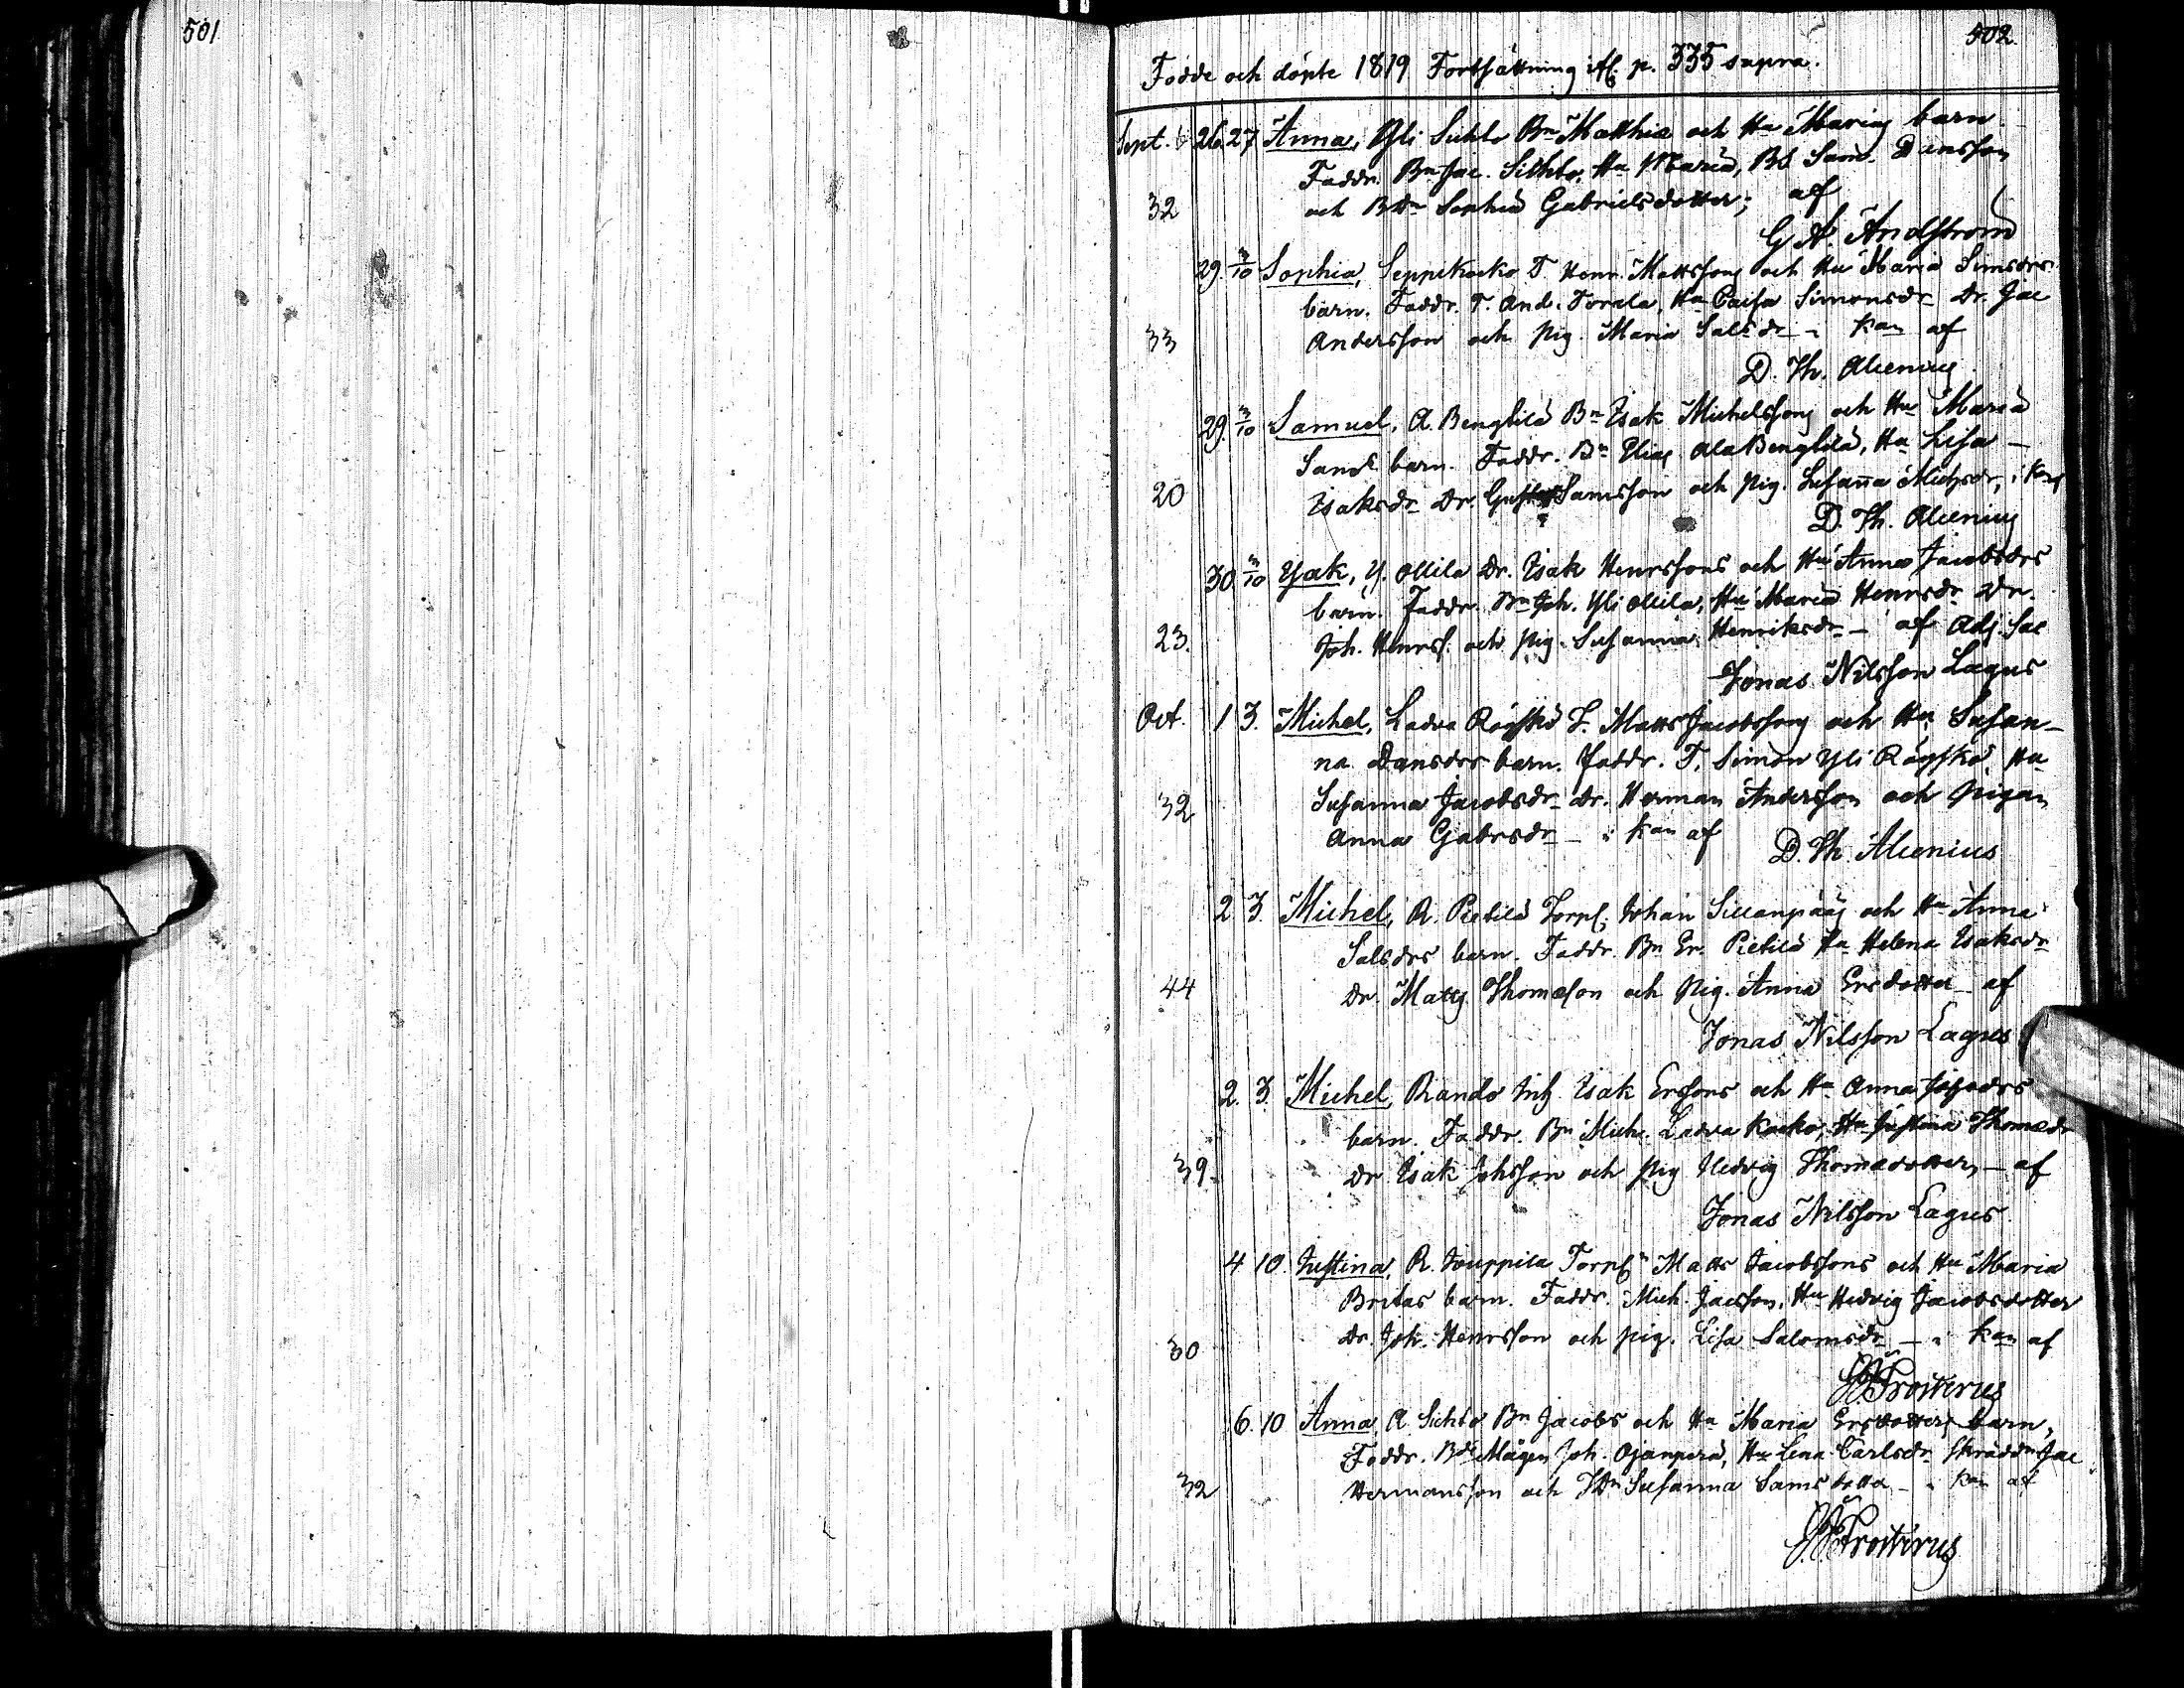 501
502
Födde och döpte 1819 Fortsättning af p. 535 supra.
Sept. 26. 27 Anna, Yli Sichto Bn Matthiæ och Hu Marias barn
Faddr. Bn Jac. Sichto, Hu Maria, BS Sam. Dansson
32 och BDn Sophia Gabrielsdotter; af
G A. Andström
29. 3/10 Sophia, Seppikoko T. Henr. Mattssons och Hu Maria Simsdrs
barn. Faddr. T. And. Torala, Hu Caisa Simonsdr Dr. Jac
33 Andersson och Pig. Maria Salsdr - i kan af
D. Th. Alcenius
29. 3/10 Samuel, A. Bengtilä Bn Isak Michelssons och Hu Maria
Samdr barn. Faddr. Bn Elias Ala Bengtilä, Hu Lisa -
20 Isaksdr Dr. Samsson och Pig. Susanna Michsdr, i kan
D. Th. Alcenius
30 3/10 Isak, Y. Ollila Dr. Isak Henrssons och Hu Anna Jacobsdrs
barn. Faddr. Bn Joh. Yli Ollila, Hu Maria Henrsdr Dr.
23. Joh. Henrss. och Pig. Susanna Henriksdr - af Adj. Sac
Jonas Nilsson Lagus
Oct. 1 3. Michel, Ladva Röyskö T. Matts Jacobssons och Hu Susan-
na Dansdrs barn. Faddr. T. Simon Yli Röyskö Hu
32 Susanna Jacobsdr Dr. Herman Andersson och Pigan
Anna Gabrsdr - i kan af
D. Th. Alcenius
2. 3. Michel, R. Pietilä Torps. Johan Sillanpääs och Hu Anna
Salsdrs barn. Faddr. Bn Er. Pietilä Hu Helena Isaksdr
44 Dr. Matts Thomasson och Pig. Anna Ersdotter af
Jonas Nilsson Lagus
2. 3. Michel, Rando Inh. Isak Erssons och Hu Anna
barn. Faddr. Bn Mich. Ladva Kocko, Hu Justina Thomædr
39. Dr Isak Johsson och Pig Hedvig Thomædotter, - af
Jonas Nilsson Lagus
4 10. Justina, R. Jouppila Torps. Matts Jacobssons och Hu Maria
Britas barn. Faddr. Mich. Jacsson, Hu Hedvig Jacobsdotter
30 Dr Joh. Henrsson och Pig. Lisa Salomsdr - i kan af
J. Frosterus
6. 10 Anna, A. Sichto Bn Jacobs och Hu Maria Ersdotters barn,
Faddr. Bde Mågen Joh. Ojanperä, Hu Lena Carlsdr Skräddn Jac
32 Hermansson och Susanna Samsdotter - i kan af
J. Frosterus